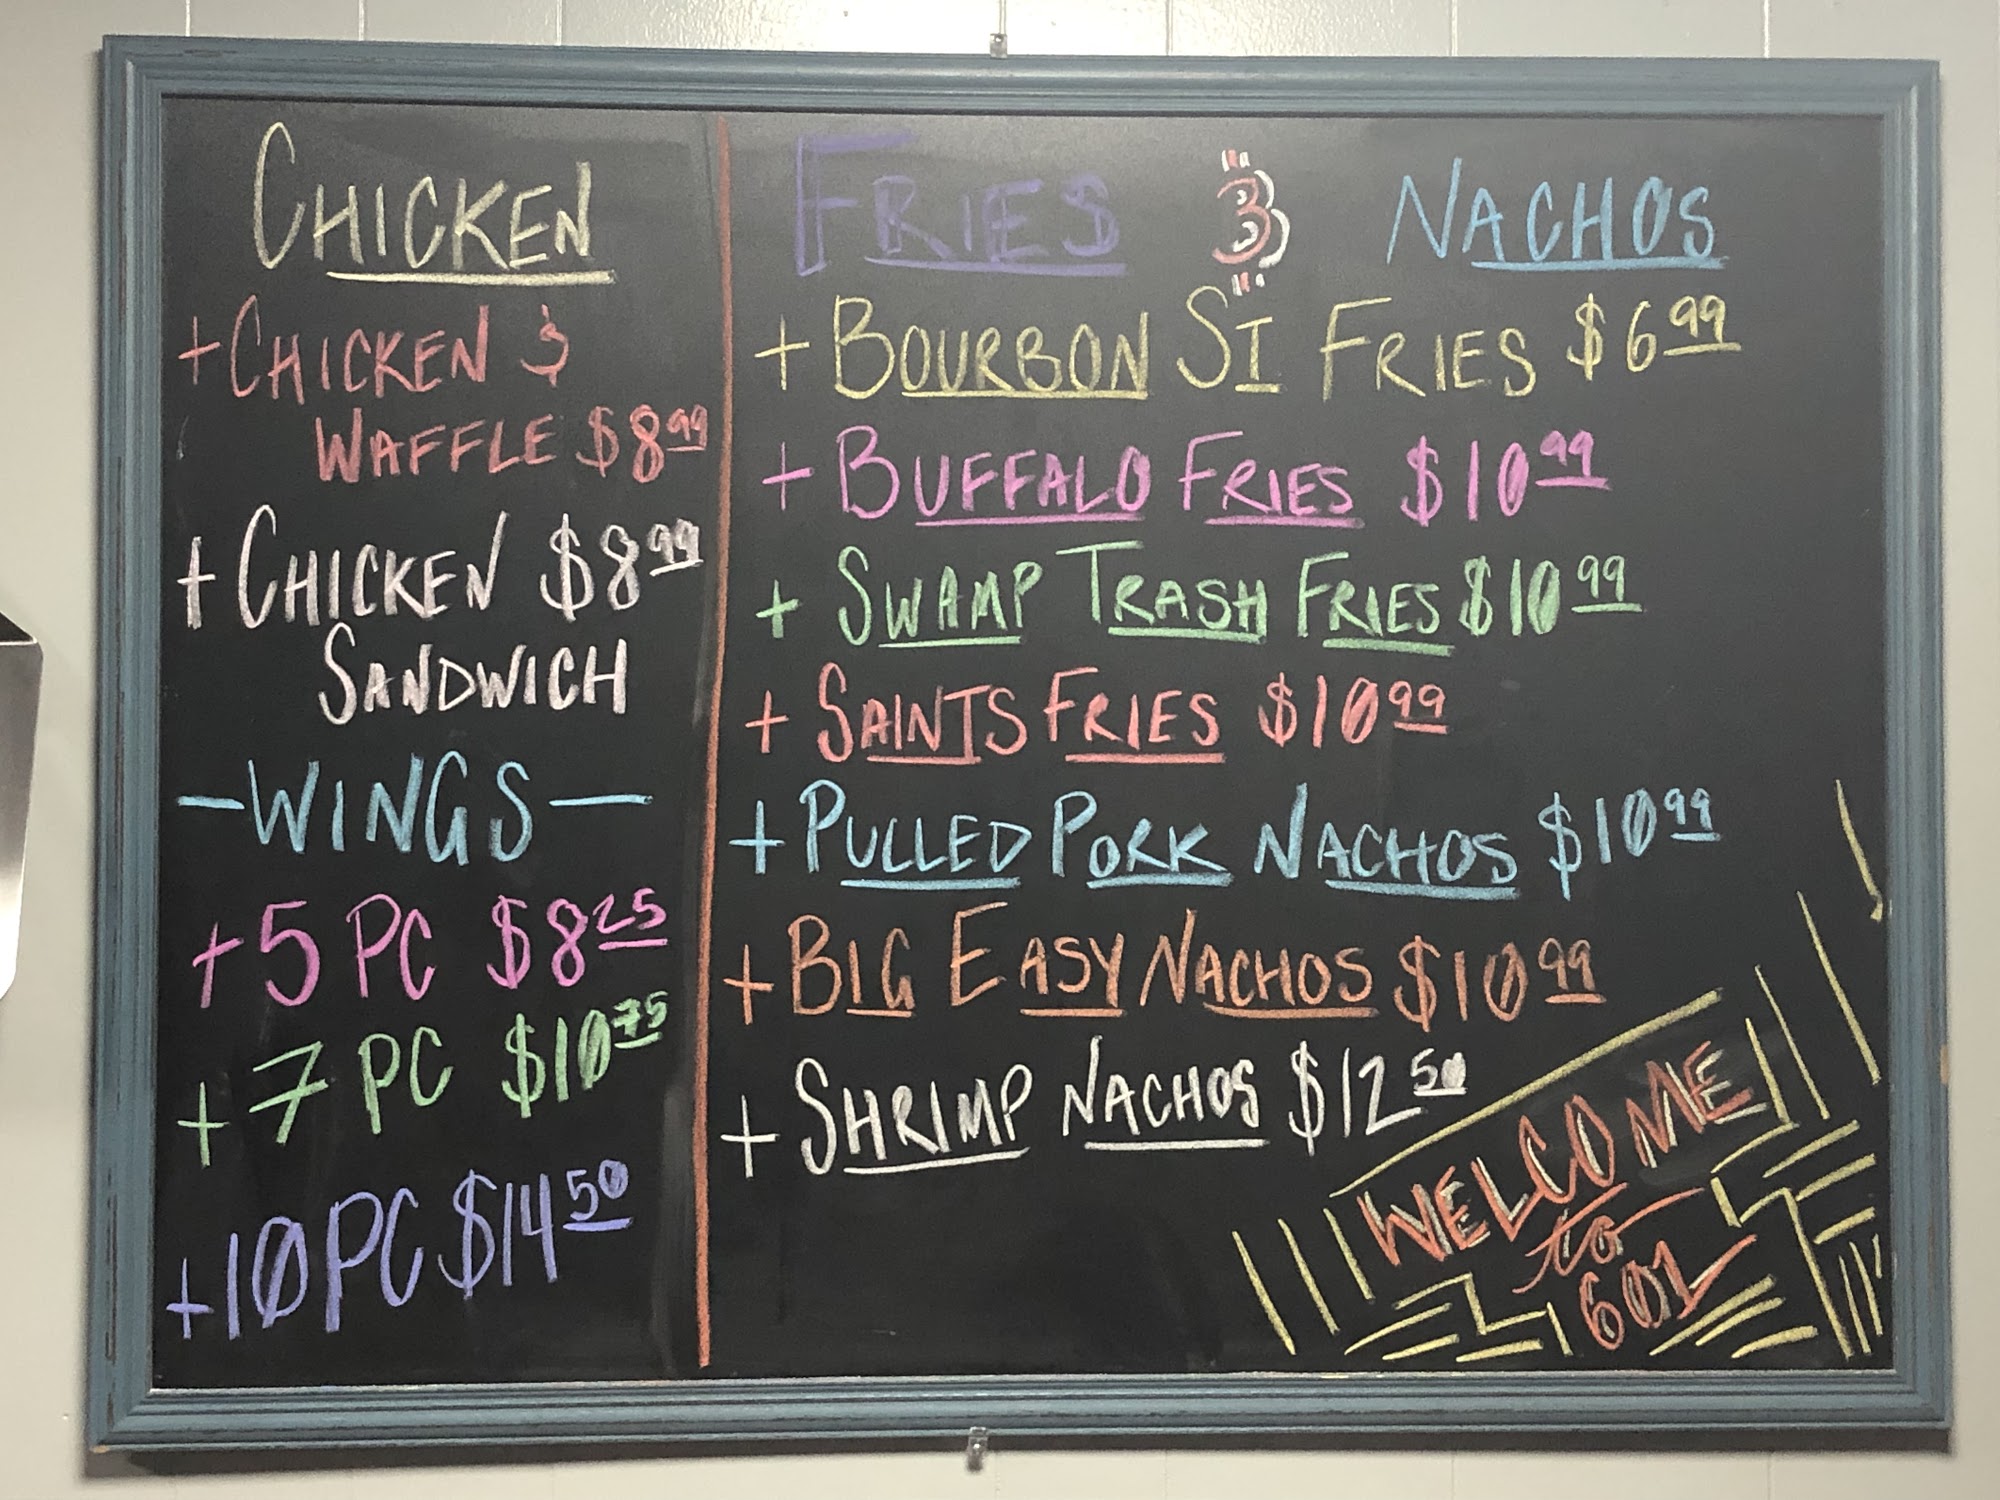 CHICKEN
+ CHICKEN &
WAFFLE $8.99
+ CHICKEN $8.99
SANDWICH
- WINGS -
+ 5 PC $8.25
+ 7 PC $10.75
+ 10 PC $14.50
FRIES & NACHOS
+ BOURBON ST FRIES $6.99
+ BUFFALO FRIES $10.99
+ SWAMP TRASH FRIES $10.99
+ SAINTS FRIES $10.99
+ PULLED PORK NACHOS $10.99
+ BIG EASY NACHOS $10.99
+ SHRIMP NACHOS $12.50
WELCOME
to
601